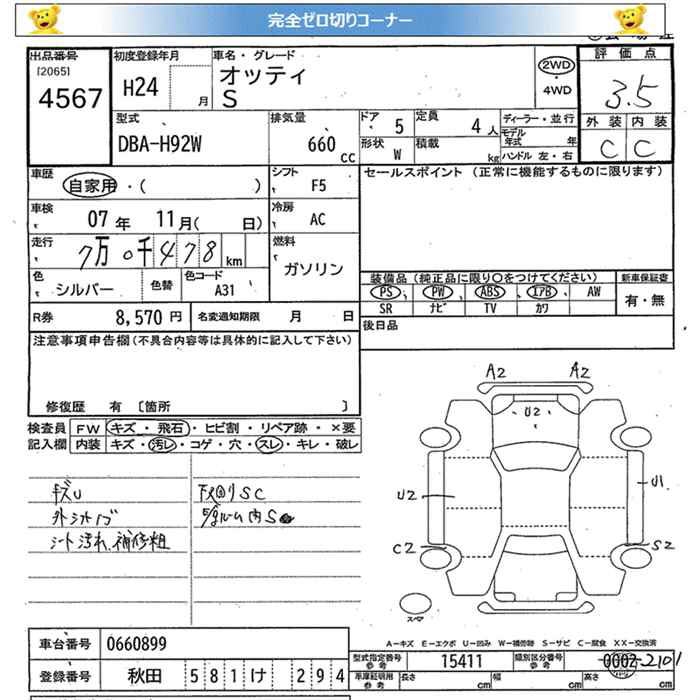 完全ゼロ切りコーナー
出品番号
[2065]
4567
初度登録年月
H24
月
車名・グレード
オッティ
S
2WD
・4WD
評価点
3.5
外装 内装
C C
型式
DBA-H92W
排気量
660 CC
ドア
5
定員
4 人
形状
W
積載
kg
ディーラー・並行
モデル年式 年
ハンドル 左・右
車歴
自家用・( )
シフト
F5
セールスポイント (正常に機能するものに限ります)
車検
07 年 11月( 日)
冷房
AC
走行
7万 0千 4 7 8 km
燃料
ガソリン
色
シルバー
色替
色コード
A31
装備品 (純正品に限り〇をつけてください)
新車保証書
PS PW ABS エアB AW
SR ナビ TV カワ
有・無
R券 8,570 円 名変通知期限 月 日
後日品
注意事項申告欄(不具合内容等は具体的に記入して下さい)
修復歴 有 〔箇所 〕
検査員記入欄
FW キズ・飛石・ヒビ割・リペア跡・×要
内装 キズ・汚レ・コゲ・穴・スレ・キレ・破レ
キズU
シート汚れ、補修粗
下回りSC
A2 A2
U2
U2 U1
C2 S2
スペア
A-キズ E-エクボ U-凹み W-補修跡 S-サビ C-腐食 XX-交換済
車台番号 0660899
登録番号 秋田 581 け 294
型式指定番号 参考 15411
類別区分番号 参考 0002 2101
車庫証明用 参考 長さ cm 幅 cm 高さ cm